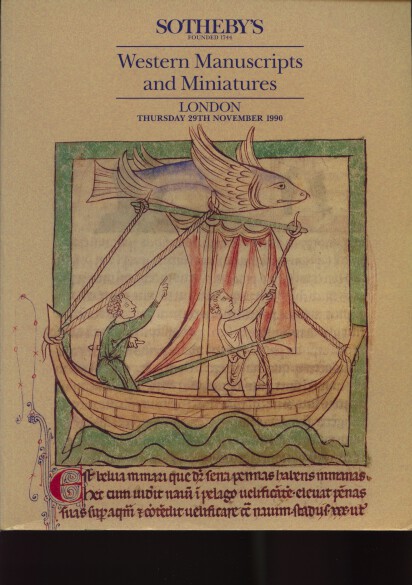 SOTHEBY'S
FOUNDED 1744
Western Manuscripts
and Miniatures
LONDON
THURSDAY 29TH NOVEMBER 1990
Est belua in mari que dr̄ serra pennas habens inmanas.
hec cum uiderit nauē ī pelago uelificāte eleuat pēnas
suas sup aqm̄ ⁊ uelificare nauim stadijs xxx ut